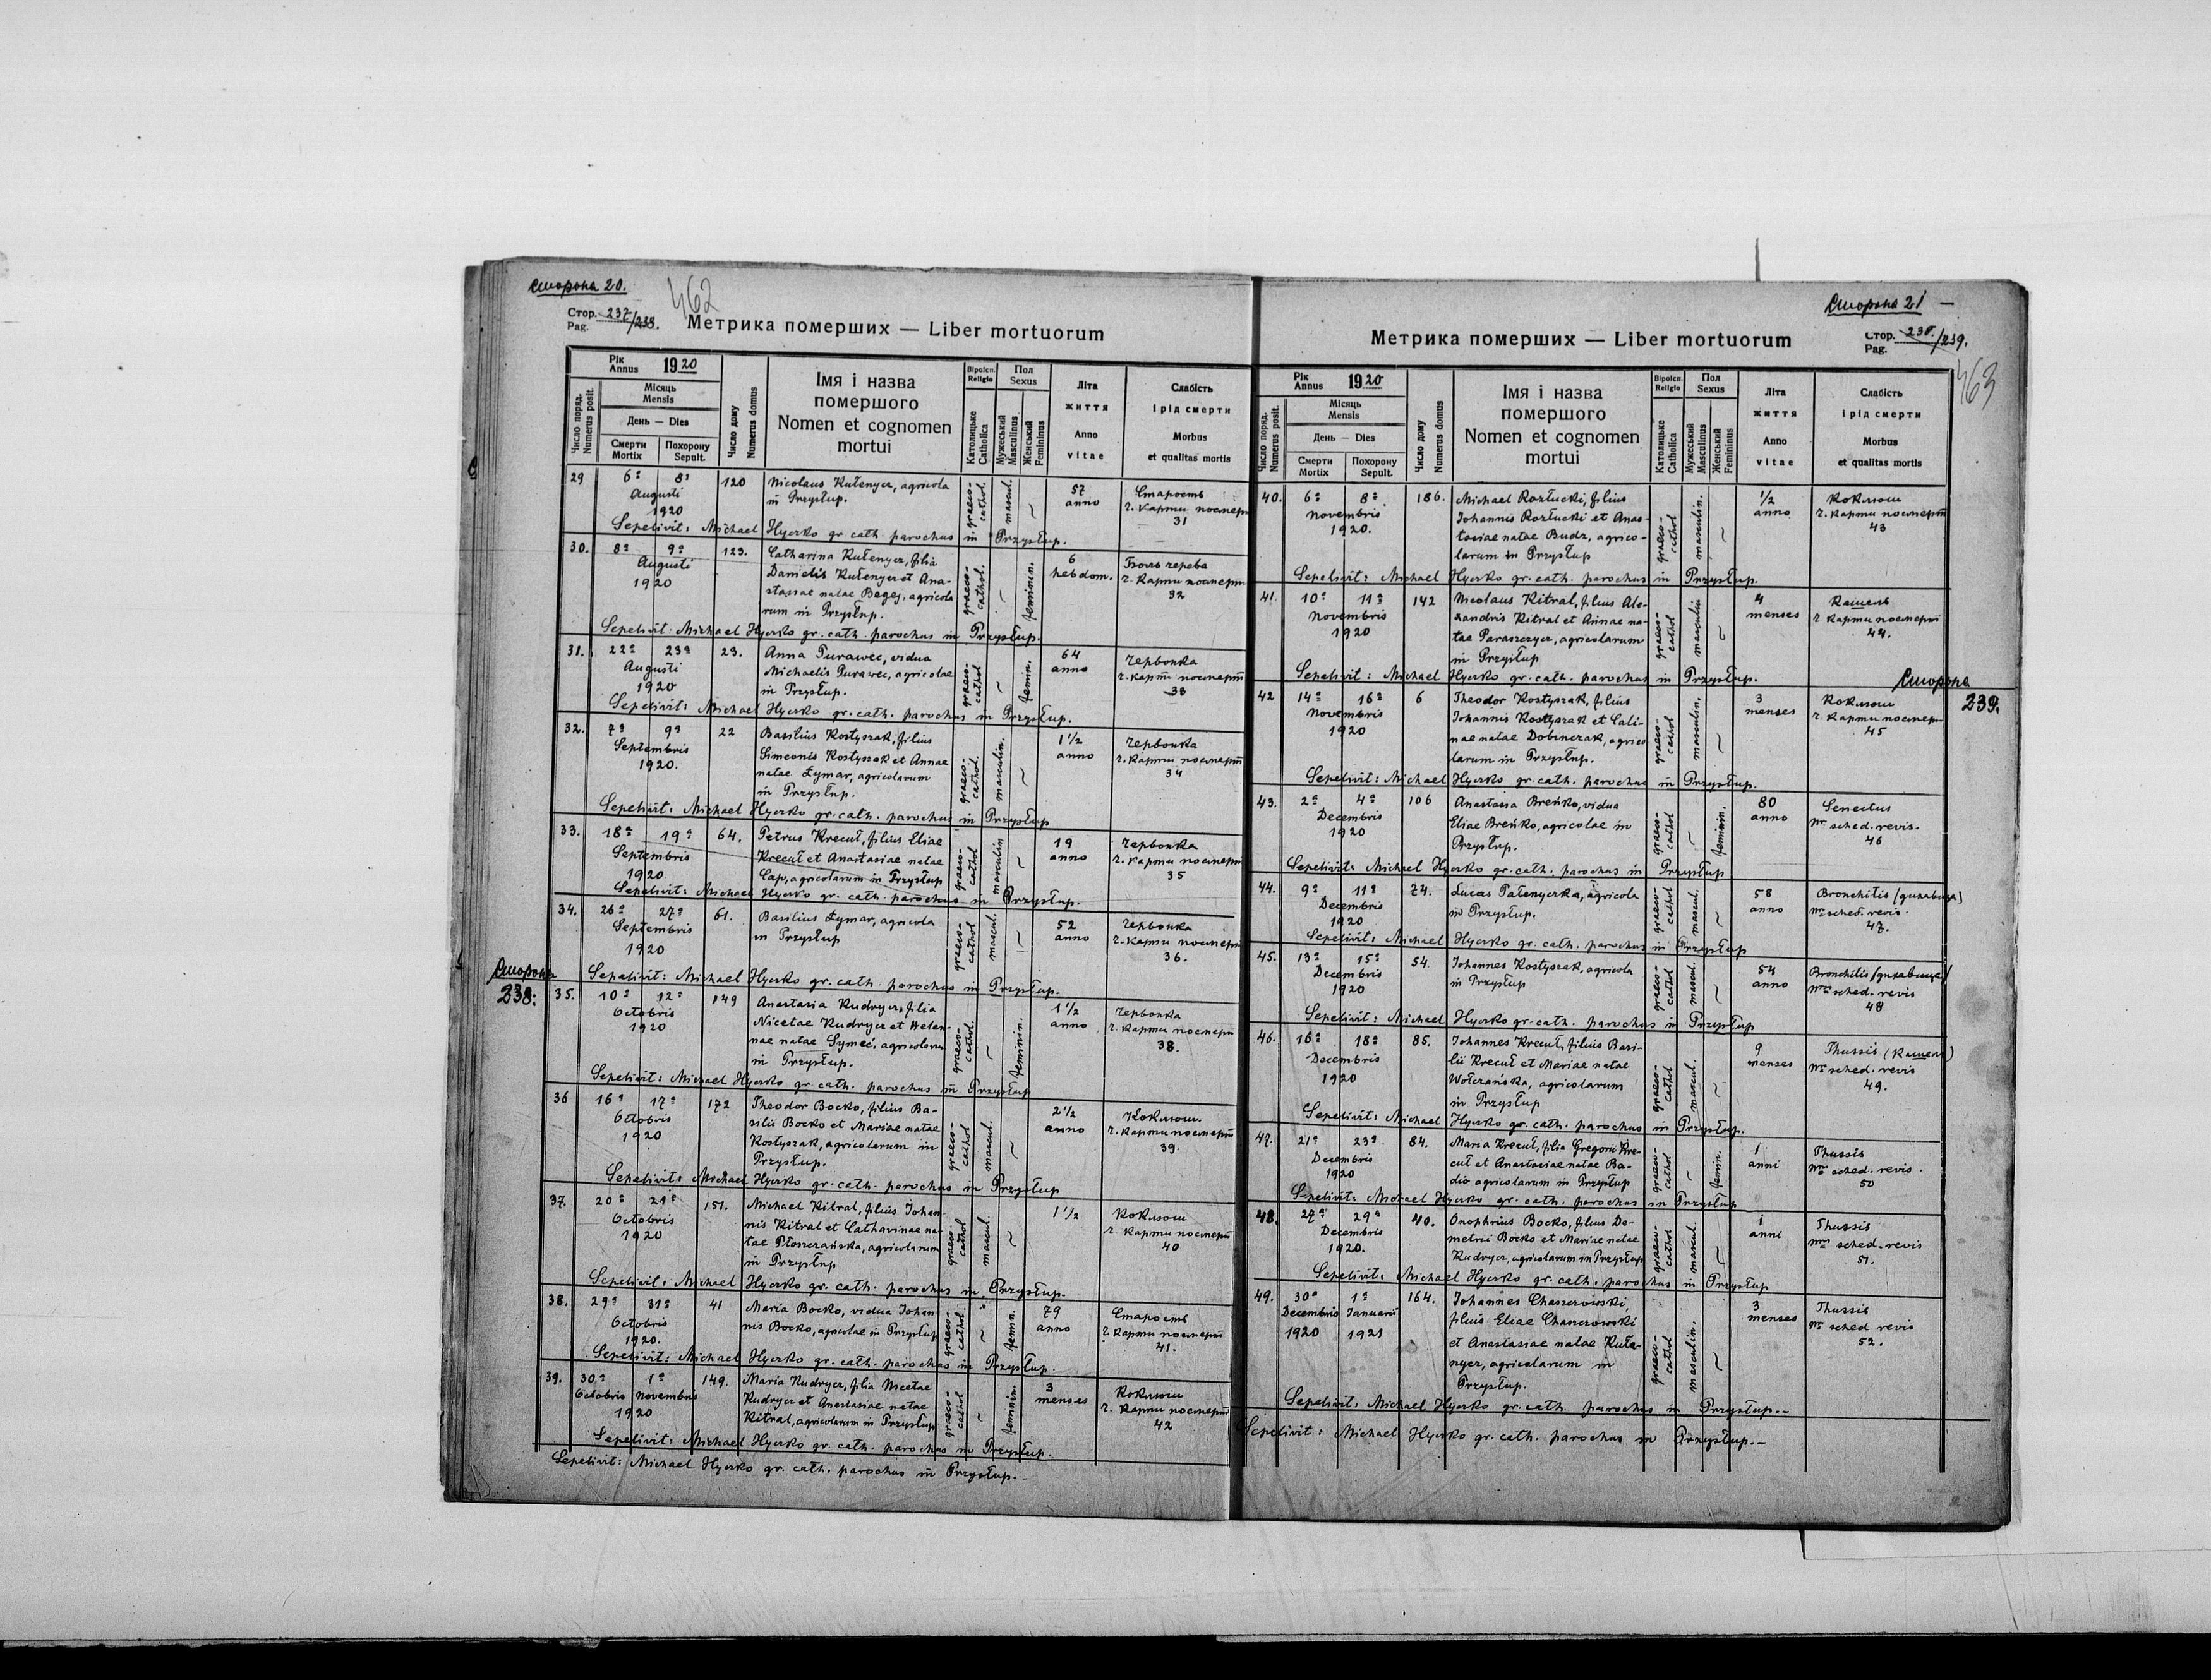 Сторона 20.
462
Стор. 237/238.
Pag.
Метрика померших — Liber mortuorum
Рік
Annus 1920
Число поряд.
Numerus posit.
Місяць
Mensis
День — Dies
Смерти
Mortix
Похорону
Sepult.
Число дому
Numerus domus
Імя і назва
помершого
Nomen et cognomen
mortui
Віроісп.
Religio
Католицьке
Catholica
Пол
Sexus
Мужеський
Masculinus
Женський
Femininus
Літа
життя
Anno
vitae
Слабість
і рід смерти
Morbus
et qualitas mortis
29 6ª 8ª 120 Nicolaus Kułenycz, agricola graeco- mascul. ~ 57 Старость
Augusti in Przysłup. cathol. anno ч. карти посмерт
1920 31
Sepelivit: Michael Hycrko gr cath. parochus in Przysłup.
30. 8ª 9ª 123. Catharina Kułenycz, filia graeco- ~ feminin. 6 Боль черева
Augusti Danielis Kułenycz et Ana- cathol. hebdom. ч. карти посмерт
1920 stasiae natae Begej, agricola 32
rum in Przysłup.
Sepelivit Michael Hycrko gr. cath. parochus in Przysłup.
31. 22ª 23ª 23. Anna Turawec, vidua graeco- ~ femin. 64 Червонка
Augusti Michaelis Turawec, agricolae cathol anno ч. карт посмерт
1920 in Przysłup. 33
Sepelivit: Michael Hycrko gr. cath. parochus in Przysłup.
32. 7ª 9ª 22 Basilius Kostyszak, filius graeco- masculin. ~ 1½ Червонка
Septembris Simeonis Kostyszak et Annae cathol. anno ч. карти посмерт
1920. natae Łymar, agricolarum 34
in Przysłup.
Sepelivit: Michael Hycrko gr. cath. parochus in Przysłup
33. 18ª 19ª 64. Petrus Krecuł, filius Eliae graeco- masculin ~ 19 Червонка
Septembris Krecuł et Anastasiae natae cathol anno ч. карти посмерт
1920 Cap, agricolarum in Przysłup 35
Sepelivit: Michael Hycrko gr. cath. parochus in Przysłup.
34. 26ª 27ª 61. Basilius Łymar, agricola graeco- mascul. ~ 52 Червонка
Septembris in Przysłup cathol anno ч. карти посмерт
1920 36.
Sepelivit: Michael Hycrko gr. cath. parochus in Przysłup.
Сторона
238.
35. 10ª 12ª 149 Anastasia Kudrycz, filia graeco- ~ feminin. 1½ Червонка
Octobris Nicetae Kudrycz et Helen- cathol. anno ч. карти посмерт
1920 nae natae Symeć, agricolarum 38.
in Przysłup.
Sepelivit: Michael Hycrko gr. cath. parochus in Przysłup
36 16ª 17ª 172 Theodor Bocko, filius Ba- graeco- mascul. ~ 2½ Коклюш.
Octobris silii Bocko et Mariae natae cathol anno ч. карти посмерт
1920 Kostyszak, agricolarum in 39.
Przysłup.
Sepelivit: Michael Hycrko gr. cath. parochus in Przysłup
37. 20ª 21ª 151. Michael Kitral, filius Johan- graeco- mascul. ~ 1½ Коклюш
Octobris nis Kitral et Catharinae na- cathol ч. карти посмерт
1920 tae Płoszczańska, agricolarum 40
in Przysłup
Sepelivit: Michael Hycrko gr. cath. parochus in Przysłup.
38. 29ª 31ª 41 Maria Bocko, vidua Johan graeco- ~ femin. 79 Старость
Octobris nis Bocko, agricolae in Przysłup cathol. anno ч. карти посмерт
1920. 41.
Sepelivit: Michael Hycrko gr. cath. parochus in Przysłup.
39. 30ª 1ª 149. Maria Kudrycz, filia Nicetae graeco- ~ feminin. 3 Коклюш
Octobris Novembris Kudrycz et Anastasiae natae cathol menses ч. карти посмерт
1920 Kitral, agricolarum in Przysłup 42
Sepelivit: Michael Hycrko gr. cath. parochus in Przysłup.
Sepelivit: Michael Hycrko gr. cath. parochus in Przysłup.-
Сторона 21 —
463
Стор. 238./239.
Pag.
Метрика померших — Liber mortuorum
Рік
Annus 1920
Число поряд.
Numerus posit.
Місяць
Mensis
День — Dies
Смерти
Mortix
Похорону
Sepult.
Число дому
Numerus domus
Імя і назва
помершого
Nomen et cognomen
mortui
Віроісп.
Religio
Католицьке
Catholica
Пол
Sexus
Мужеський
Masculinus
Женський
Femininus
Літа
життя
Anno
vitae
Слабість
і рід смерти
Morbus
et qualitas mortis
40. 6ª 8ª 186. Michael Rozłucki, filius graeco- masculin. ~ ½ Коклюш
Novembris Johannis Rozłucki et Anas- cathol anno ч. карти посмерт
1920. tasiae natae Budz, agrico- 43
larum in Przysłup
Sepelivit: Michael Hycrko gr. cath. parochus in Przysłup.
41. 10ª 11ª 142 Nicolaus Kitral, filius Ale- graeco- masculin ~ 4 Кашель
Novembris xandris Kitral et Annae na- cathol menses ч карти посмерт
1920 tae Paraszczycz, agricolarum 44.
in Przysłup
Sepelivit: Michael Hycrko gr. cath. parochus in Przysłup.
Сторона
239.
42 14ª 16ª 6 Theodor Kostyszak, filius graeco- masculin. ~ 3 Коклюш
Novembris Johannis Kostyszak et Cali- cathol menses ч. карти посмерт
1920 nae natae Dobinczak, agrico 45
larum in Przysłup.
Sepelivit: Michael Hycrko gr. cath. parochus in Przysłup.
43. 2ª 4ª 106 Anastasia Breńko, vidua graeco- ~ feminin. 80 Senectus
Decembris Eliae Breńko, agricolae in cathol anno Nr sched. revis.
1920 Przysłup. 46
Sepelivit: Michael Hycrko gr. cath. parochus in Przysłup
44. 9ª 11ª 74. Lucas Pałenyczka, agricola graeco- mascul. ~ 58 Bronchitis (дихавиця)
Decembris in Przysłup. cathol anno Nr sched. revis.
1920 47.
Sepelivit: Michael Hycrko gr. cath. parochus in Przysłup
45. 13ª 15ª 54. Johannes Kostyszak, agricola graeco- mascul. ~ 54 Bronchitis (дихавиця)
Decembris in Przysłup cathol anno Nr sched. revis
1920 48
Sepelivit: Michael Hycrko gr. cath. parochus in Przysłup
46. 16ª 18ª 85. Johannes Krecuł, filius Basi- graeco- mascul. ~ 9 Thussis (Кашель)
Decembris lii Krecuł et Mariae natae cathol menses Nr sched. revis
1920 Wołczańska, agricolarum 49.
in Przysłup
Sepelivit: Michael Hycrko gr. cath. parochus in Przysłup.
47. 21ª 23ª 84. Maria Krecuł, filia Gregorii Kre- graeco- ~ femin. 1 Thussis
Decembris cuł et Anastasiae natae Ba- cathol anni Nr sched. revis.
1920 dio agricolarum in Przysłup 50
Sepelivit: Michael Hycrko gr. cath. parochus in Przysłup
48. 27ª 29ª 40. Onophrius Bocko, filius De- graeco- mascul. ~ 1 Thussis
Decembris metrii Bocko et Mariae natae cathol anni Nr sched. revis
1920. Kudrycz, agricolarum in Przysłup 51.
Sepelivit: Michael Hycrko gr. cath. parochus in Przysłup
49. 30ª 1ª 164. Johannes Chaszczowski, graeco- masculin. ~ 3 Thussis
Decembris Januarii filius Eliae Chaszczowski cathol menses Nr sched revis
1920 1921 et Anastasiae natae Kułe- 52.
nycz, agricolarum in
Przysłup.
Sepelivit: Michael Hycrko gr. cath. parochus in Przysłup.-
Sepelivit: Michael Hycrko gr. cath. parochus in Przysłup.-